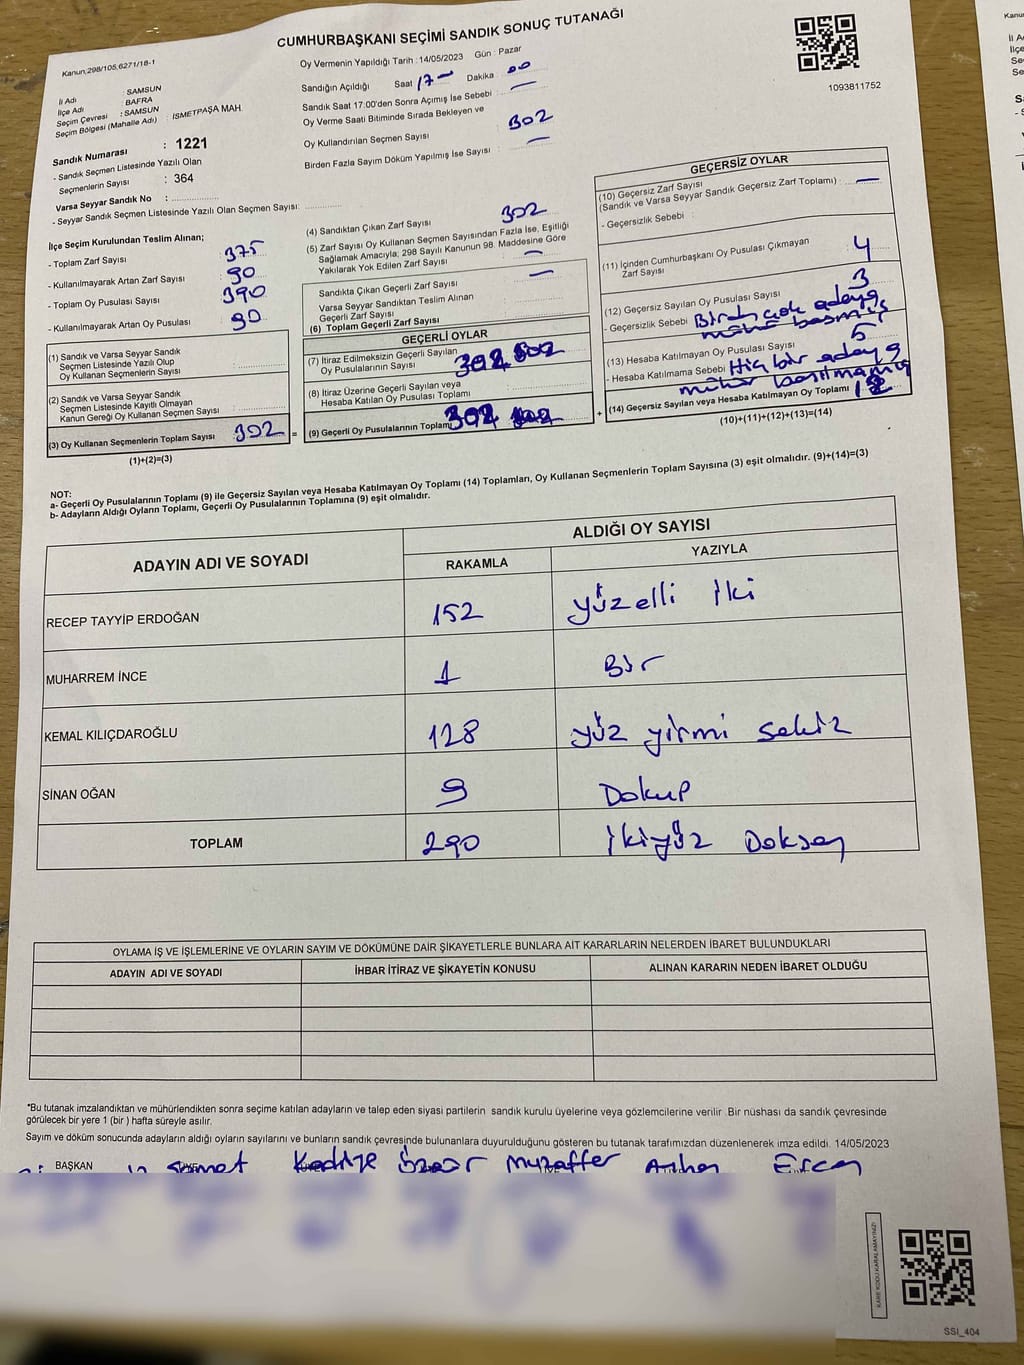 CUMHURBAŞKANI SEÇİMİ SANDIK SONUÇ TUTANAĞI
Kanun,298/105,6271/18-1
İl Adı : SAMSUN
İlçe Adı : BAFRA
Seçim Çevresi : SAMSUN
Seçim Bölgesi (Mahalle Adı) : İSMETPAŞA MAH.
Sandık Numarası : 1221
- Sandık Seçmen Listesinde Yazılı Olan
Seçmenlerin Sayısı : 364
Varsa Seyyar Sandık No :
- Seyyar Sandık Seçmen Listesinde Yazılı Olan Seçmen Sayısı:
Oy Vermenin Yapıldığı Tarih : 14/05/2023 Gün : Pazar
Sandığın Açıldığı Saat 17 Dakika 00
Sandık Saat 17:00'den Sonra Açımış İse Sebebi —
Oy Verme Saati Bitiminde Sırada Bekleyen ve
Oy Kullandırılan Seçmen Sayısı 302
Birden Fazla Sayım Döküm Yapılmış İse Sayısı —
1093811752
İlçe Seçim Kurulundan Teslim Alınan;
- Toplam Zarf Sayısı 375
- Kullanılmayarak Artan Zarf Sayısı 90
- Toplam Oy Pusulası Sayısı 390
- Kullanılmayarak Artan Oy Pusulası 90
(1) Sandık ve Varsa Seyyar Sandık
Seçmen Listesinde Yazılı Olup
Oy Kullanan Seçmenlerin Sayısı
(2) Sandık ve Varsa Seyyar Sandık
Seçmen Listesinde Kayıtlı Olmayan
Kanun Gereği Oy Kullanan Seçmen Sayısı
(3) Oy Kullanan Seçmenlerin Toplam Sayısı 302 =
(1)+(2)=(3)
(4) Sandıktan Çıkan Zarf Sayısı 302
(5) Zarf Sayısı Oy Kullanan Seçmen Sayısından Fazla İse, Eşitliği
Sağlamak Amacıyla; 298 Sayılı Kanunun 98. Maddesine Göre
Yakılarak Yok Edilen Zarf Sayısı —
Sandıkta Çıkan Geçerli Zarf Sayısı —
Varsa Seyyar Sandıktan Teslim Alınan
Geçerli Zarf Sayısı
(6) Toplam Geçerli Zarf Sayısı
GEÇERLİ OYLAR
(7) İtiraz Edilmeksizin Geçerli Sayılan
Oy Pusulalarının Sayısı 302
(8) İtiraz Üzerine Geçerli Sayılan veya
Hesaba Katılan Oy Pusulası Toplamı
(9) Geçerli Oy Pusulalarının Toplamı 302 +
GEÇERSİZ OYLAR
(10) Geçersiz Zarf Sayısı
(Sandık ve Varsa Seyyar Sandık Geçersiz Zarf Toplamı) : —
- Geçersizlik Sebebi :
(11) İçinden Cumhurbaşkanı Oy Pusulası Çıkmayan
Zarf Sayısı 4
(12) Geçersiz Sayılan Oy Pusulası Sayısı 3
- Geçersizlik Sebebi Birden çok adaya
mühür basmış
(13) Hesaba Katılmayan Oy Pusulası Sayısı 5
- Hesaba Katılmama Sebebi Hiç bir adaya
mühür basılmamış
(14) Geçersiz Sayılan veya Hesaba Katılmayan Oy Toplamı 12
(10)+(11)+(12)+(13)=(14)
NOT:
a- Geçerli Oy Pusulalarının Toplamı (9) ile Geçersiz Sayılan veya Hesaba Katılmayan Oy Toplamı (14) Toplamları, Oy Kullanan Seçmenlerin Toplam Sayısına (3) eşit olmalıdır. (9)+(14)=(3)
b- Adayların Aldığı Oyların Toplamı, Geçerli Oy Pusulalarının Toplamına (9) eşit olmalıdır.
ADAYIN ADI VE SOYADI
ALDIĞI OY SAYISI
RAKAMLA YAZIYLA
RECEP TAYYİP ERDOĞAN 152 yüzelli iki
MUHARREM İNCE 1 Bir
KEMAL KILIÇDAROĞLU 128 yüz yirmi sekiz
SİNAN OĞAN 9 Dokuz
TOPLAM 290 ikiyüz Doksan
OYLAMA İŞ VE İŞLEMLERİNE VE OYLARIN SAYIM VE DÖKÜMÜNE DAİR ŞİKAYETLERLE BUNLARA AİT KARARLARIN NELERDEN İBARET BULUNDUKLARI
ADAYIN ADI VE SOYADI İHBAR İTİRAZ VE ŞİKAYETİN KONUSU ALINAN KARARIN NEDEN İBARET OLDUĞU
*Bu tutanak imzalandıktan ve mühürlendikten sonra seçime katılan adayların ve talep eden siyasi partilerin sandık kurulu üyelerine veya gözlemcilerine verilir .Bir nüshası da sandık çevresinde
görülecek bir yere 1 (bir ) hafta süreyle asılır.
Sayım ve döküm sonucunda adayların aldığı oyların sayılarını ve bunların sandık çevresinde bulunanlara duyurulduğunu gösteren bu tutanak tarafımızdan düzenlenerek imza edildi. 14/05/2023
BAŞKAN Samet Kadriye Özer Muzaffer Ercan
KARE KODU KARALAMAYINIZ!
SSI_404